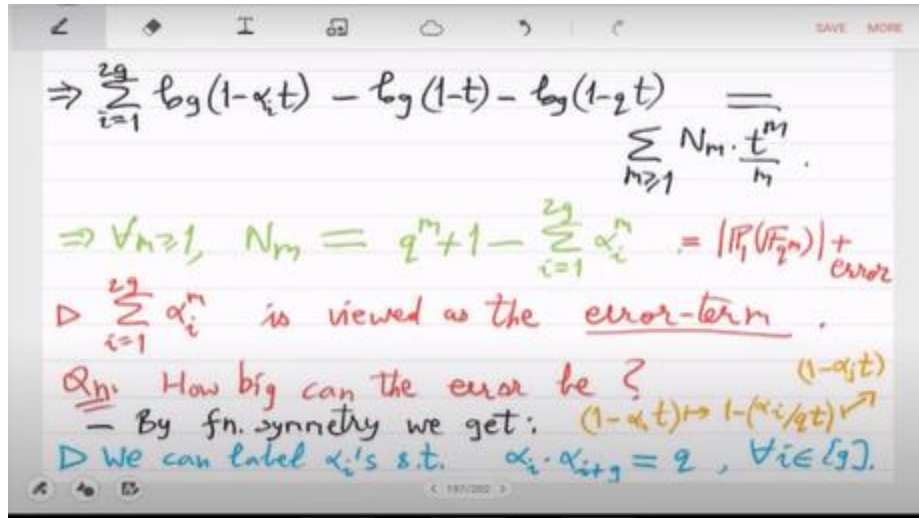 SAVE MORE
⇒ ∑_{i=1}^{2g} log(1-α_i t) - log(1-t) - log(1-qt) =
∑_{m≥1} N_m · t^m/m .
⇒ ∀m≥1, N_m = q^m+1 - ∑_{i=1}^{2g} α_i^m = |P_1(F_{q^m})| + error
▷ ∑_{i=1}^{2g} α_i^m is viewed as the error-term .
Qn. How big can the error be ? (1-α_j t)
- By fn. symmetry we get: (1-α_i t) ↦ 1-(α_i/qt) ↗
▷ We can label α_i's s.t. α_i · α_{i+g} = q , ∀i∈[g].
< 197/202 >